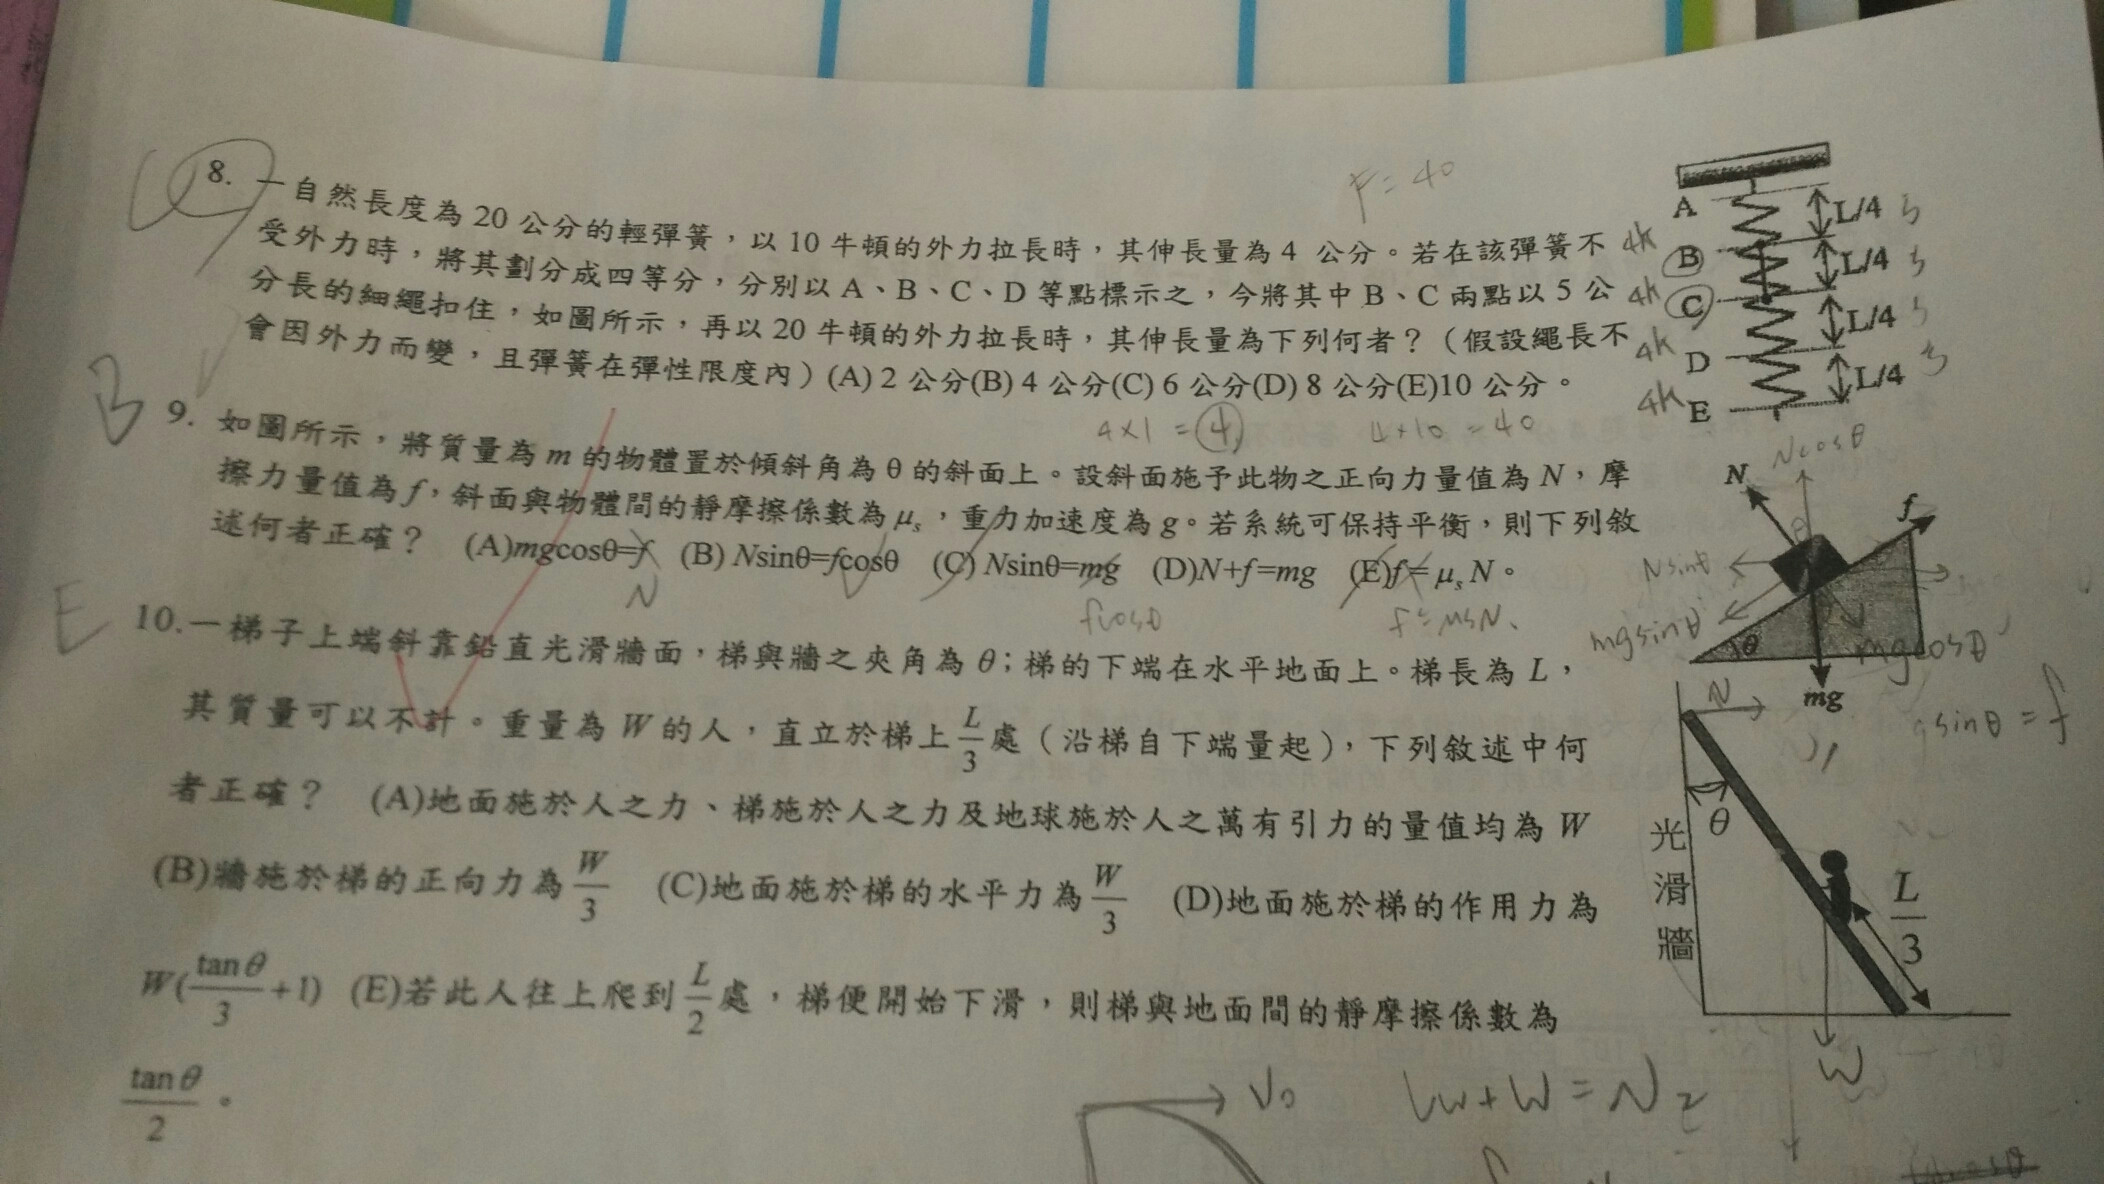 F = 40
8. 一自然長度為 20 公分的輕彈簧，以 10 牛頓的外力拉長時，其伸長量為 4 公分。若在該彈簧不
受外力時，將其劃分成四等分，分別以 A、B、C、D 等點標示之，今將其中 B、C 兩點以 5 公
分長的細繩扣住，如圖所示，再以 20 牛頓的外力拉長時，其伸長量為下列何者？（假設繩長不
會因外力而變，且彈簧在彈性限度內）(A) 2 公分(B) 4 公分(C) 6 公分(D) 8 公分(E)10 公分。
A L/4 5
4K B L/4 5
4K C L/4 5
4K D L/4 5
4K E
4×1 = 4
4×10 = 40
B
9. 如圖所示，將質量為 m 的物體置於傾斜角為 θ 的斜面上。設斜面施予此物之正向力量值為 N，摩
擦力量值為 f，斜面與物體間的靜摩擦係數為 μs，重力加速度為 g。若系統可保持平衡，則下列敘
述何者正確？ (A)mgcosθ=f (B) Nsinθ=fcosθ (C) Nsinθ=mg (D)N+f=mg (E)f= μs N。
N
fcosθ
Ncosθ
N
f
θ
Nsinθ
mgsinθ
θ
mgcosθ
mg
gsinθ = f
E
10.一梯子上端斜靠鉛直光滑牆面，梯與牆之夾角為 θ；梯的下端在水平地面上。梯長為 L，
其質量可以不計。重量為 W 的人，直立於梯上 L/3 處（沿梯自下端量起），下列敘述中何
者正確？ (A)地面施於人之力、梯施於人之力及地球施於人之萬有引力的量值均為 W
(B)牆施於梯的正向力為 W/3 (C)地面施於梯的水平力為 W/3 (D)地面施於梯的作用力為
W(tanθ/3 +1) (E)若此人往上爬到 L/2 處，梯便開始下滑，則梯與地面間的靜摩擦係數為
tanθ/2 。
N
θ
光滑牆
L/3
W
V0
W + W = N2